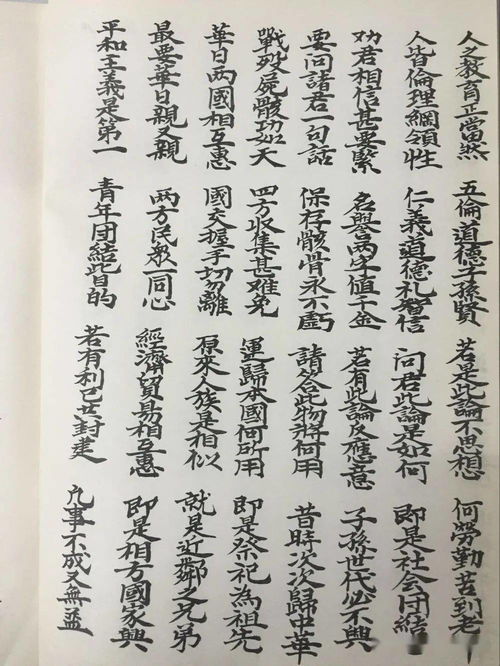 人之教育正當然 五倫道德子孫賢 若是此論不思想 何勞勤苦到老
人皆倫理綱領性 仁義道德礼智信 问君此論是如何 即是社会团結
劝君相信甚要緊 名譽两字值千金 若有此論反應意 子孫世代必不興
要问諸君一句話 保存骸骨永不虧 請答此物將何用 昔時次次歸中華
戰歿屍骸功如天 四方收集甚难免 運歸本國何所用 即是祭祀為祖先
華日两國相互惠 國交握手切離 原來人族是相似 就是近鄰之兄弟
最要華日親又親 两方民衆一同心 經濟貿易相互惠 即是相方國家興
平和主義是第一 青年团結皆目的 若有利己共封建 凡事不成又無益